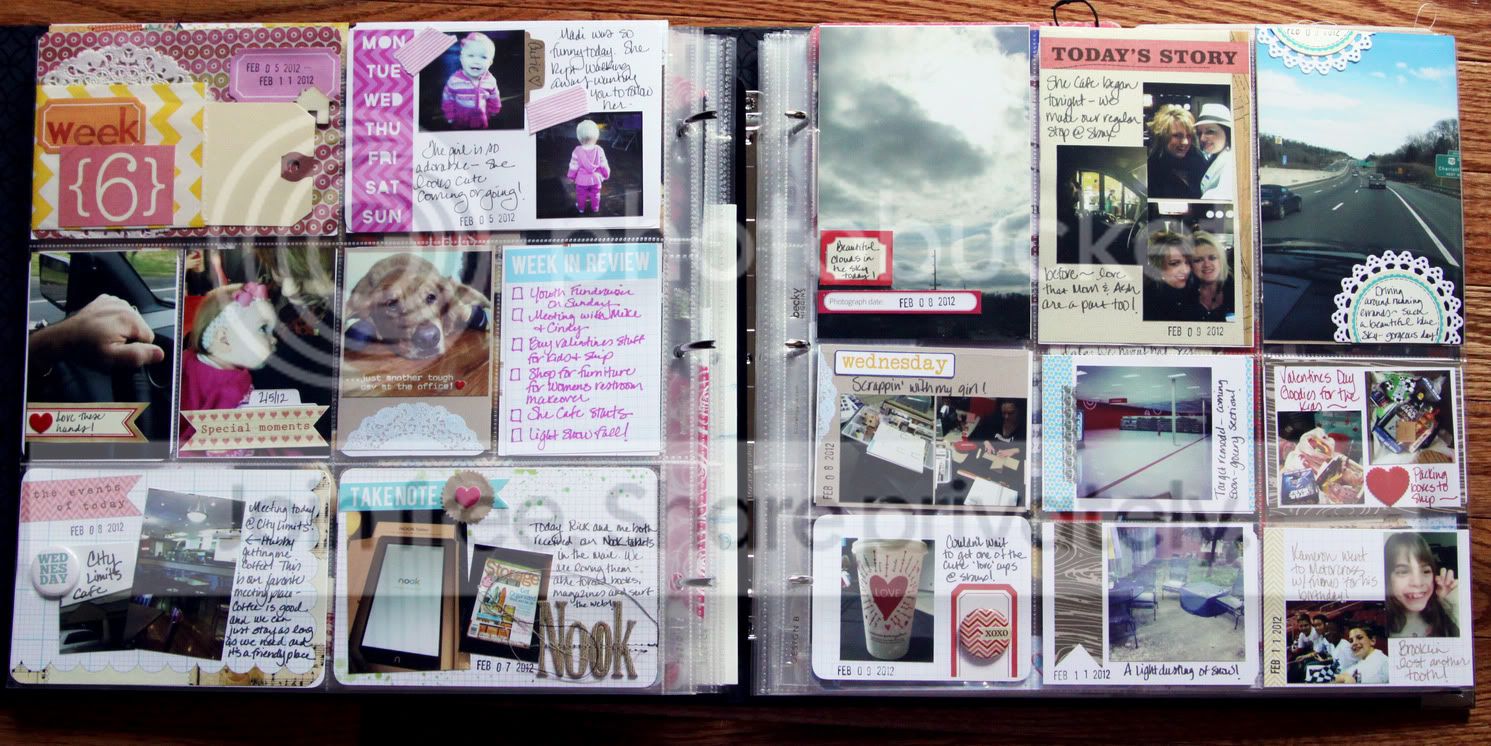 FEB 05 2012 -
FEB 11 2012
week
{6}
MON
TUE
WED
THU
FRI
SAT
SUN
Cutie
Madi was so
funny today. She
kept walking
away wanting
you to follow
her.
The girl is so
adorable - she
looks cute
coming or going!
FEB 05 2012
Love these
hands!
2/5/12
Special moments
...just another tough
day at the office!
WEEK IN REVIEW
Youth Fundraiser
on Sunday
Meeting with Mike
& Cindy
Buy Valentines stuff
for kids & ship
Shop for furniture
for womens restroom
makeover
She Cafe starts
Light snow fall!
the events
of today
FEB 08 2012
WED
NES
DAY
City
Limits
Cafe
Meeting today
@ City Limits!
Hubby
getting me
coffee! This
is our favorite
meeting place -
Coffee is good
and we can
just stay as long
as we need and
it's a friendly place
TAKE NOTE
Today Rick and me both
received our Nook tablets
in the mail. We
are loving them -
able to read books,
magazines and surf
the web!
nook
Storage
FEB 07 2012
NOOK
Beautiful
clouds in
the sky
today!
Photograph date:
FEB 08 2012
becky
HIGGINS
TODAY'S STORY
She Cafe began
tonight - we
made our regular
stop @
before - love
that Mom & Ash
are a part too!
FEB 09 2012
2012
Driving
around running
errands - such
a beautiful blue
sky - gorgeous day!
wednesday
Scrappin' with my girl!
FEB 08 2012
Target remodel - coming
soon - grocery section!
Valentines Day
Goodies for the
Kids
Packing
boxes to
ship
LOVE
Couldn't wait
to get one of the
cute 'love' cups
@
XOXO
FEB 09 2012
FEB 11 2012
A light dusting of snow!
Kameron went
to Motorcross
w/friends for his
birthday!
FEB 11 2012
Brooklin
lost another
tooth!
photobucket